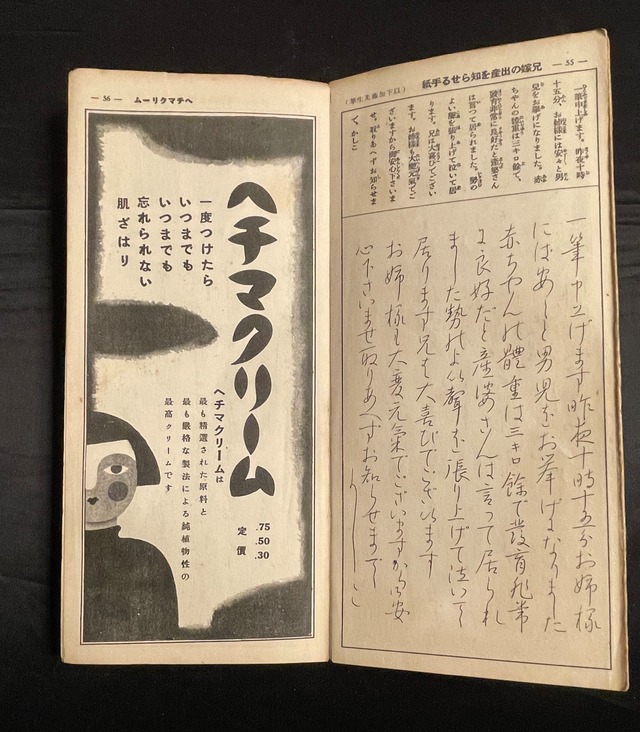 — 55 —
兄嫁の出産を知らせる手紙
(以下加藤先生筆)
一筆申上げます。昨夜十時
十五分、お姉樣には安々と男
兒をお擧げになりました。赤
ちやんの體重は三キロ餘で、
發育非常に良好だと產婆さん
は言つて居られました。勢の
よい聲を張り上げて泣いて居
ります。兄も大喜びでござい
ます。お姉樣も大變元氣でご
ざいますから御安心下さいま
せ。取りあへずお知らせま
で。かしこ
一筆申上げます昨夜十時十五分お姉樣
には安々と男兒をお擧げになりました
赤ちやんの體重は三キロ餘で發育非常
に良好だと產婆さんは言つて居られ
ました勢のよい聲を張り上げて泣いて
居ります兄も大喜びでございます
お姉樣も大變元氣でございますから御安
心下さいませ取りあへずお知らせまで
かしこ
ヘチマクリーム
— 56 —
ヘチマクリーム
一度つけたら
いつまでも
いつまでも
忘れられない
肌ざはり
ヘチマクリームは
最も精選された原料と
最も嚴格な製法による純植物性の
最高クリームです
定價
.75
.50
.30